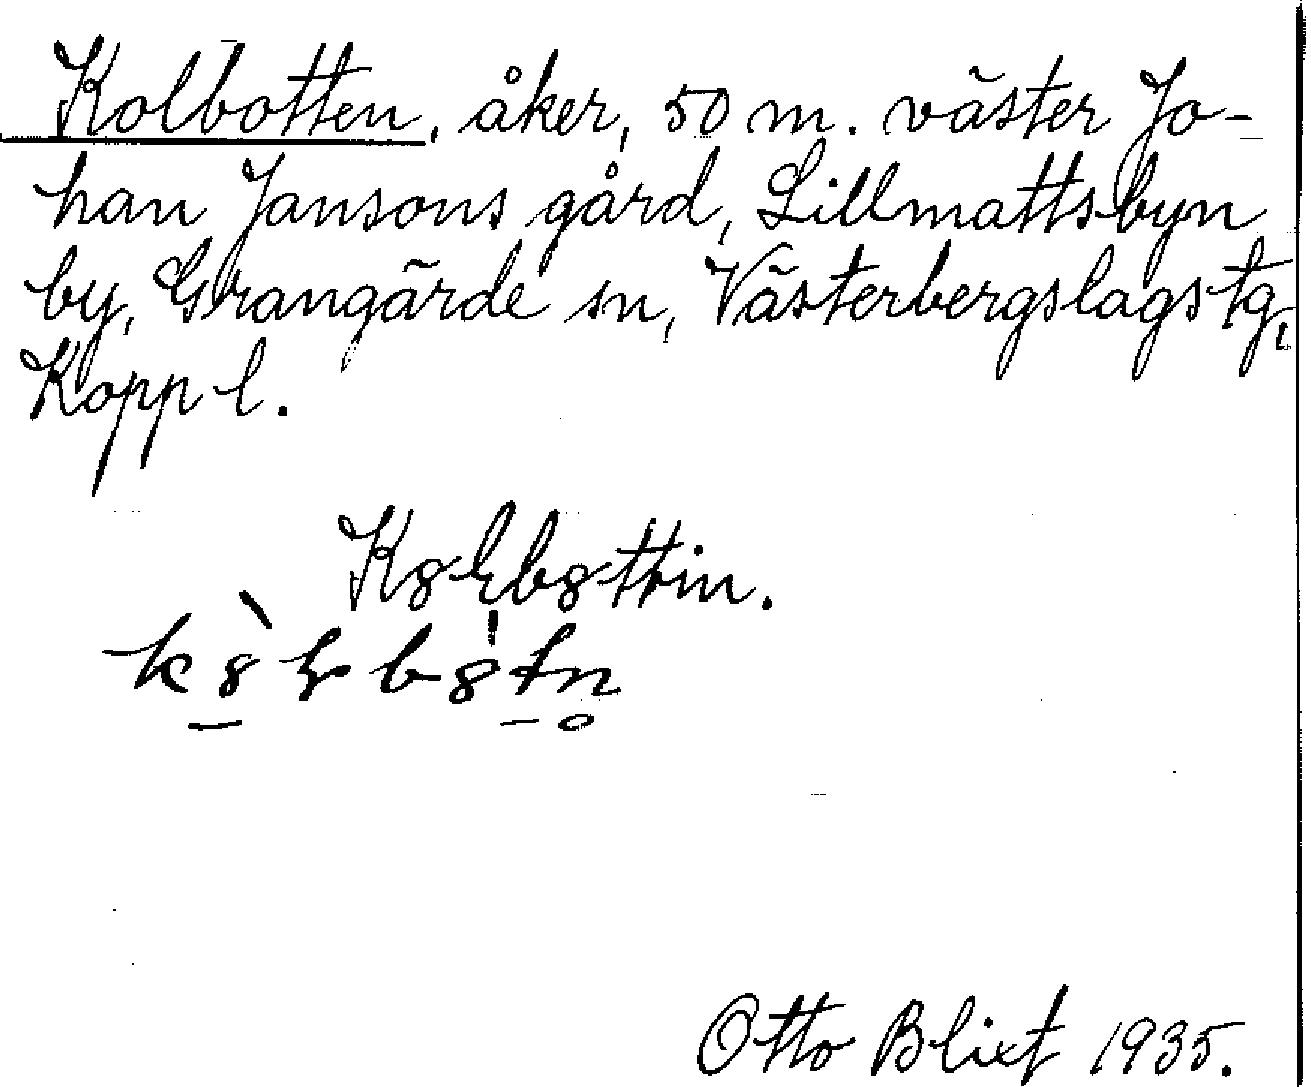 Kolbotten, åker, 50 m. väster Jo-
han Jansons gård, Lillmattsbyn
by, Grangärde sn, Västerbergslags tg,
Kopp l.
Otto Blixt 1935.